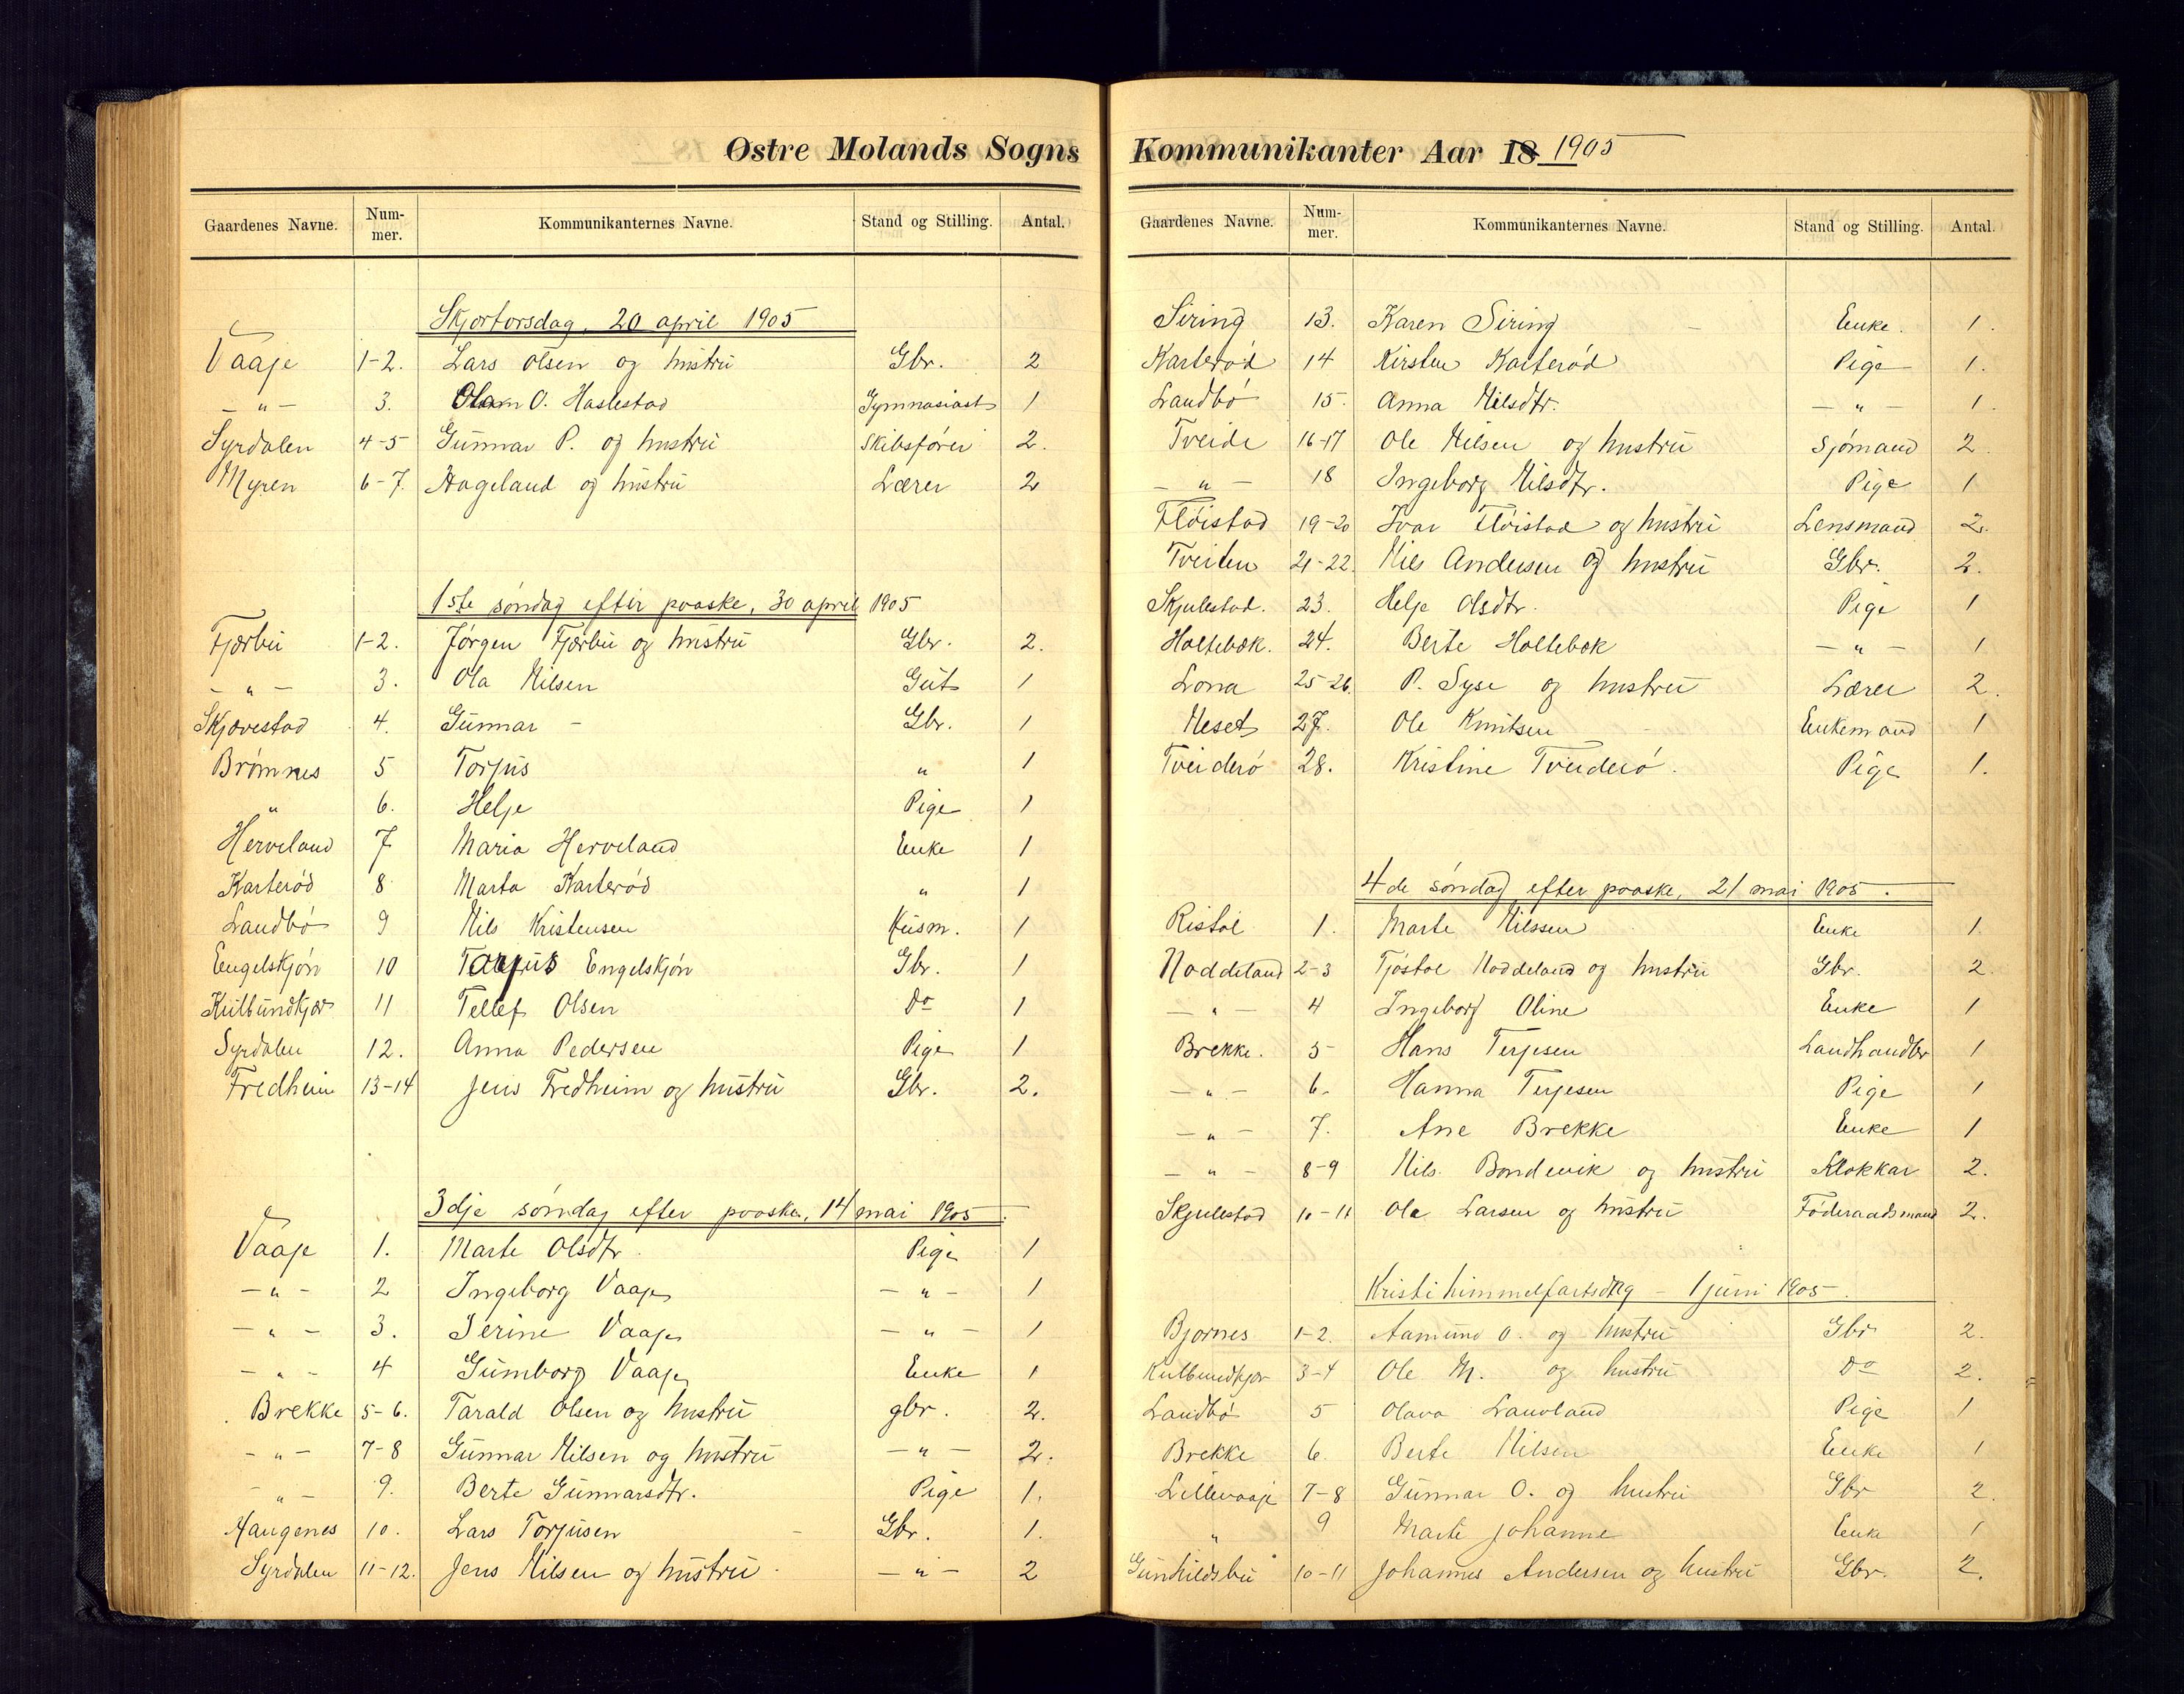 Østre Molands Sogns
Gaardenes Navne. Num-mer. Kommunikanternes Navne. Stand og Stilling. Antal.
Skjærtorsdag, 20 april 1905
Vaaje 1-2. Lars Olsen og hustru Gbr. 2
— " — 3. O. Haslestad Gymnasiast 1
Syrdalen 4-5 Gunnar P. og hustru Skibsfører 2.
Myren 6-7. Hageland og hustru Lærer 2
1ste søndag efter paaske, 30 april 1905
Fjærbu 1-2. Jørgen Fjærbu og hustru Gbr. 2.
— " — 3. Ola Nilsen Gut 1
Skjævestad 4. Gunnar — Gbr. 1
Brømnes 5 Torjus " 1
" 6. Helje Pige 1
Herveland 7 Maria Herveland Enke 1
Karterød 8 Marta Karterød " 1
Landbø 9 Nils Kristensen Husm. 1
Engelskjøn 10 Torjus Engelskjøn Gbr. 1
Kulbundkjær 11 Tellef Olsen Do 1
Syrdalen 12. Anna Pedersen Pige 1
Fredheim 13-14 Jens Fredheim og hustru Gbr. 2.
3dje søndag efter paaske, 14 mai 1905.
Vaaje 1. Marte Olsdtr. Pige 1
— " — 2 Ingeborg Vaaje — " — 1
— " — 3. Serine Vaaje — " — 1
— " — 4 Gumborg Vaaje Enke 1
Brekke 5-6. Tarald Olsen og hustru gbr. 2.
— " — 7-8 Gunnar Nilsen og hustru — " — 2.
— " — 9. Berte Gunnarsdtr. Pige 1.
Haugenes 10. Lars Torjusen Gbr. 1.
Syrdalen 11-12. Jens Nilsen og hustru — " — 2
Kommunikanter Aar 18 1905
Gaardenes Navne. Num-mer. Kommunikanternes Navne. Stand og Stilling. Antal.
Siring 13. Karen Siring Enke. 1.
Karterød 14 Kirsten Karterød Pige 1.
Landbø 15. Anna Nilsdtr. — " — 1.
Tveide 16-17 Ole Nilsen og hustru Sjømand 2
— " — 18 Ingeborg Nilsdtr. Pige 1
Fløistad 19-20 Ivar Fløistad og hustru Lensmand 2.
Tveiten 21-22. Nils Andersen og hustru Gbr. 2.
Skjulestad. 23. Helje Olsdtr. Pige 1
Holtebæk. 24. Berte Holtebæk — " — 1
Lona 25-26. P. Syse og hustru Lærer 2.
Neset 27. Ole Knutsen Enkemand 1
Tveiderø 28. Kristine Tveiderø. Pige 1.
4de søndag efter paaske, 21 mai 1905.
Ristøl 1. Marte Nilssen Enke 1.
Noddeland 2-3 Tjøstøl Noddeland og hustru Gbr. 2.
— " — 4 Ingeborg Oline Enke 1
Brekke. 5 Hans Terjesen Landhandler 1
— " — 6. Hanna Terjesen Pige 1
— " — 7. Ane Brekke Enke 1
— " — 8-9 Nils Bondevik og hustru Klokkar 2.
Skjulestad 10-11 Ole Larsen og hustru Føderaadsmand 2.
Kristi himmelfartsdag — 1 juni 1905.
Bjornes 1-2. Aamund O. og hustru Gbr 2.
Kulbundkjær 3-4 Ole M. og hustru Do 2.
Landbø 5 Olava Lauvland Pige 1
Brekke 6. Berte Nilsen Enke 1
Lillevaaje 7-8 Gunnar O. og hustru Gbr 2.
" 9 Marte Johanne Enke 1
Gunhildsbu 10-11 Johannes Andersen og hustru Gbr. 2.